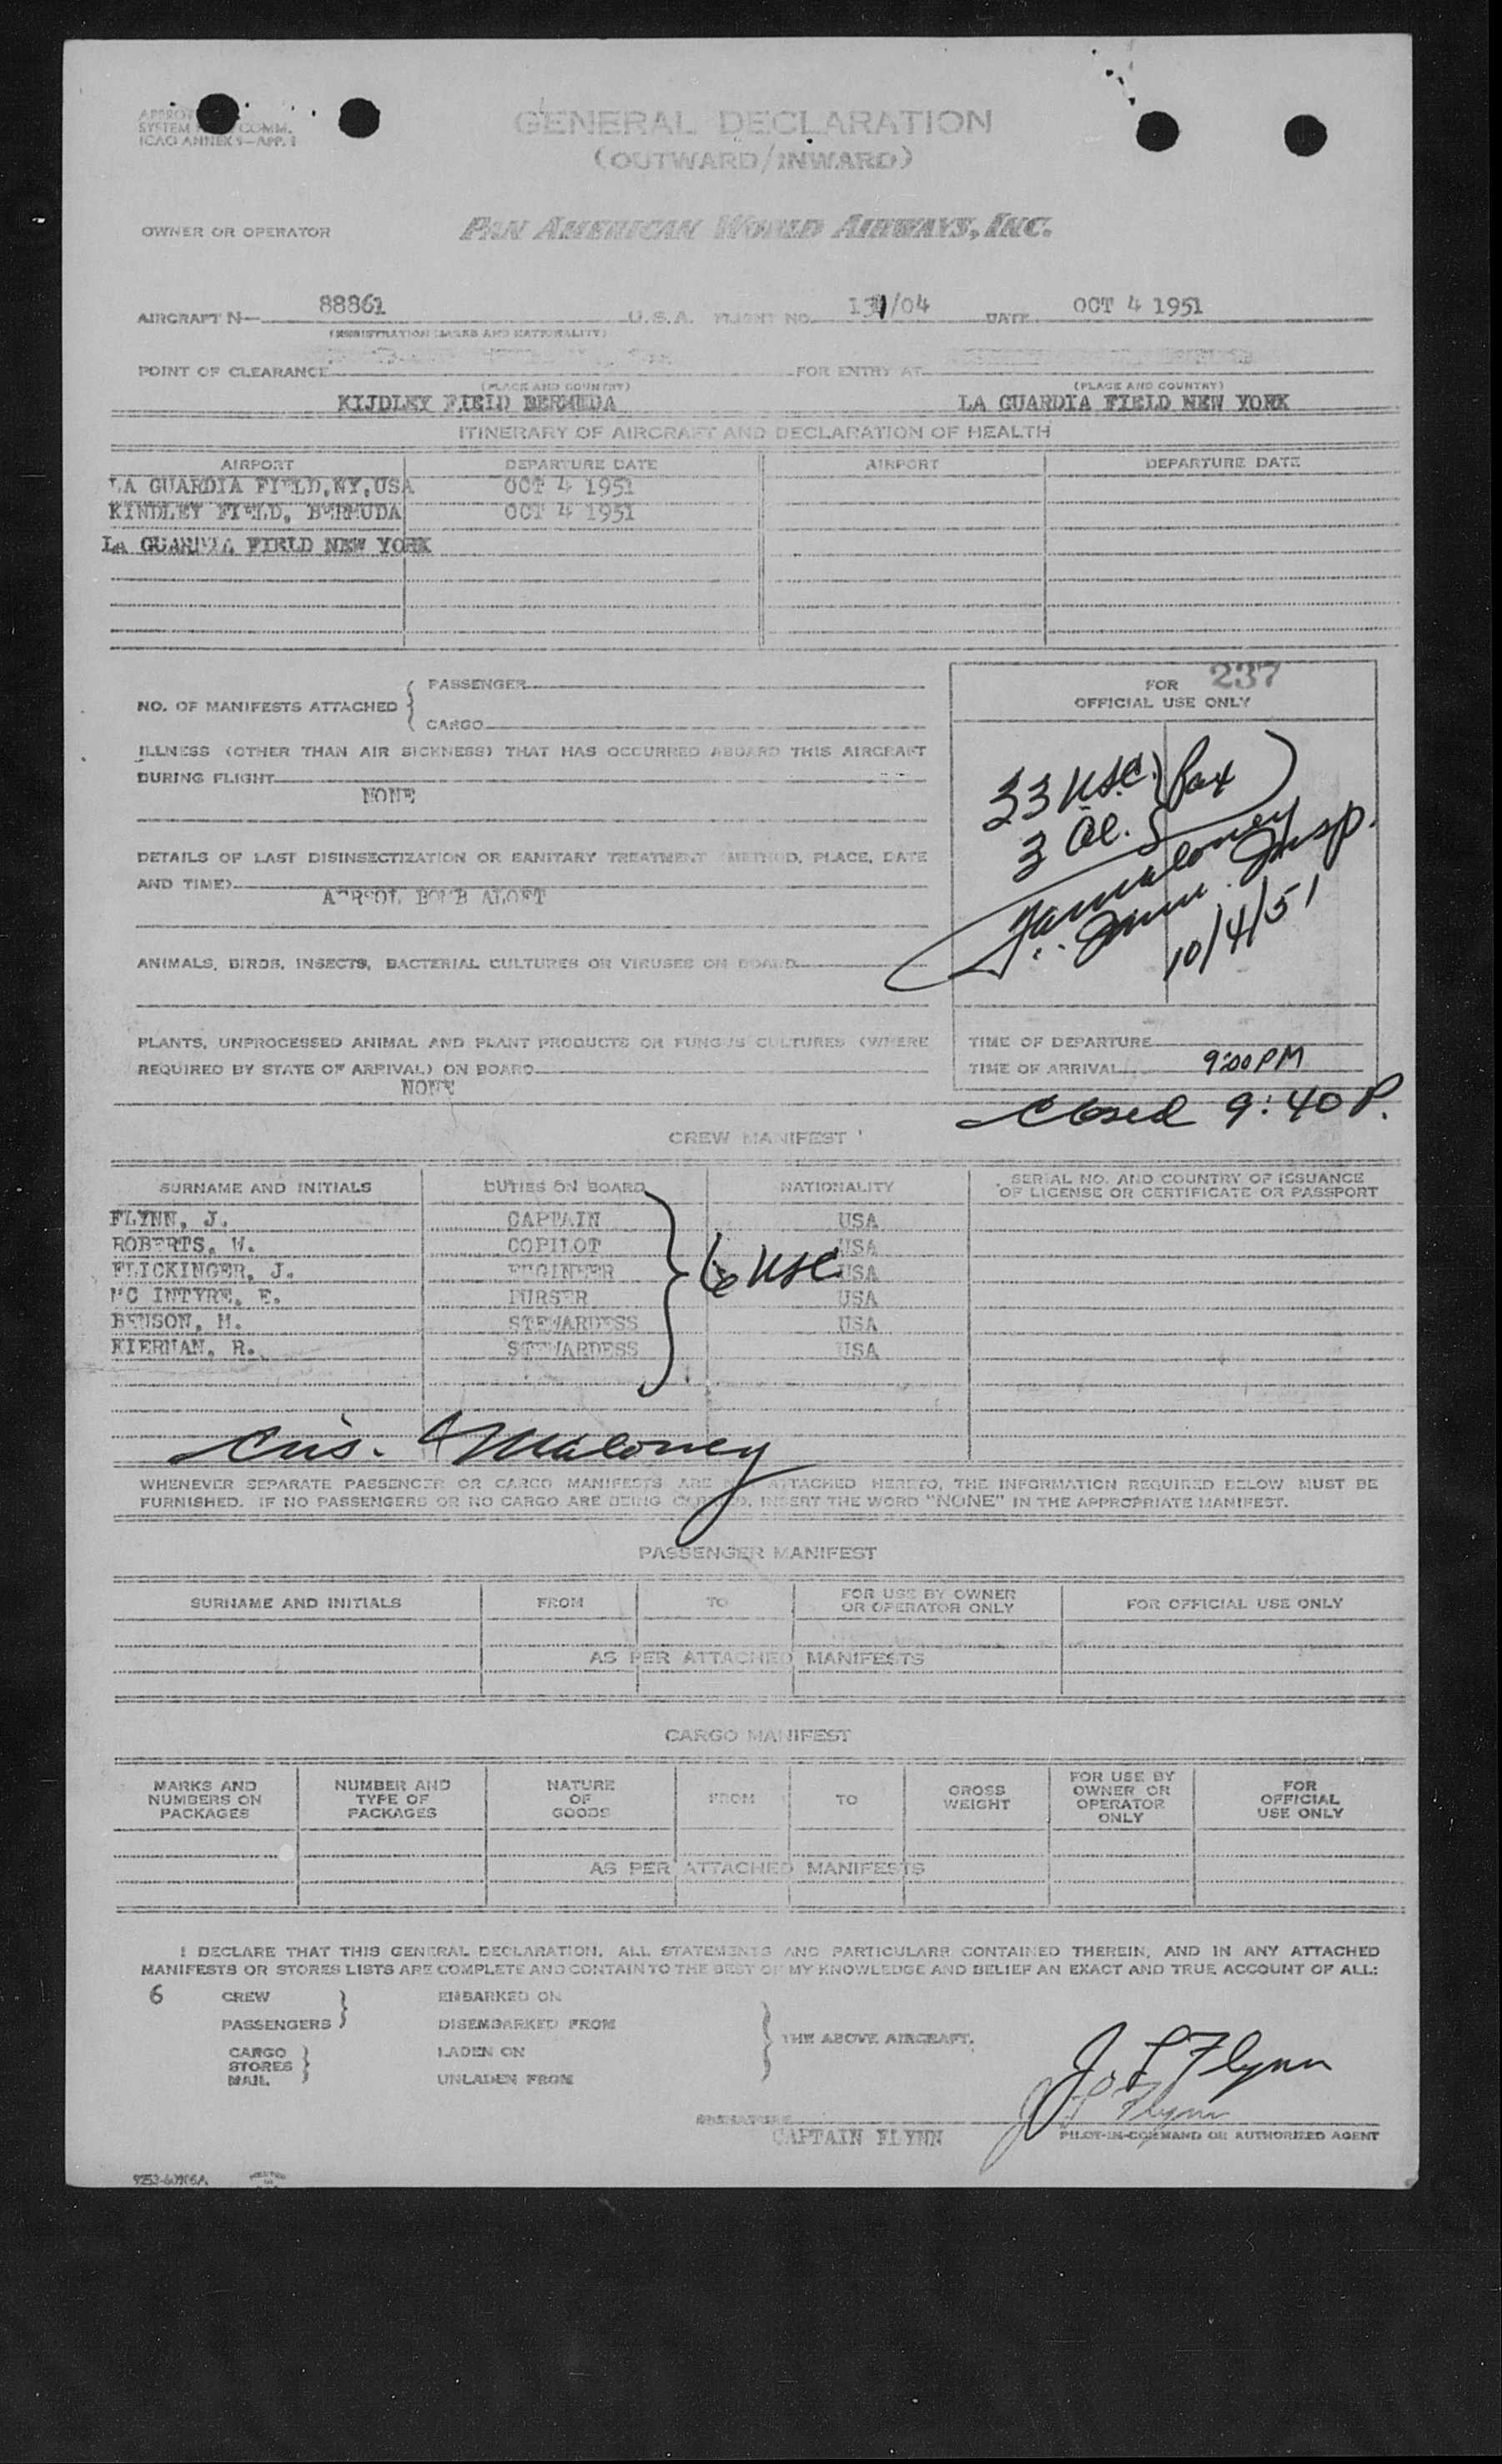 SYSTEM COMM.
ICAO ANNEX 9—APP. 1
GENERAL DECLARATION
(OUTWARD/INWARD)
OWNER OR OPERATOR PAN AMERICAN WORLD AIRWAYS, INC.
AIRCRAFT N— 88861 U.S.A. FLIGHT NO. /04 DATE OCT 4 1951
(REGISTRATION MARKS AND NATIONALITY)
POINT OF CLEARANCE FOR ENTRY AT
(PLACE AND COUNTRY) (PLACE AND COUNTRY)
KIJDLEY FIELD BERMUDA LA GUARDIA FIELD NEW YORK
ITINERARY OF AIRCRAFT AND DECLARATION OF HEALTH
AIRPORT DEPARTURE DATE AIRPORT DEPARTURE DATE
LA GUARDIA FIELD,NY,USA OCT 4 1951
KINDLEY FIELD, BERMUDA OCT 4 1951
LA GUARDIA FIELD NEW YORK
NO. OF MANIFESTS ATTACHED { PASSENGER
CARGO
FOR 237
OFFICIAL USE ONLY
ILLNESS (OTHER THAN AIR SICKNESS) THAT HAS OCCURRED ABOARD THIS AIRCRAFT
DURING FLIGHT
NONE
33 USC. } Pax
3 al.
Maloney
Imm. Insp.
10/4/51
DETAILS OF LAST DISINSECTIZATION OR SANITARY TREATMENT (METHOD, PLACE, DATE
AND TIME)
AERSOL BOMB ALOFT
ANIMALS, BIRDS, INSECTS, BACTERIAL CULTURES OR VIRUSES ON BOARD
PLANTS, UNPROCESSED ANIMAL AND PLANT PRODUCTS OR FUNGUS CULTURES (WHERE
REQUIRED BY STATE OF ARRIVAL) ON BOARD
NONE
TIME OF DEPARTURE
TIME OF ARRIVAL 9:00 PM
Closed 9:40 P.
CREW MANIFEST
SURNAME AND INITIALS DUTIES ON BOARD NATIONALITY SERIAL NO. AND COUNTRY OF ISSUANCE
OF LICENSE OR CERTIFICATE OR PASSPORT
FLYNN, J. CAPTAIN USA
ROBERTS, W. COPILOT USA
FLICKINGER, J. ENGINEER USA
MC INTYRE, E. PURSER USA
BENSON, M. STEWARDESS USA
KIERNAN, R. STEWARDESS USA
} 6 USC
Maloney
WHENEVER SEPARATE PASSENGER OR CARGO MANIFESTS ARE ATTACHED HERETO, THE INFORMATION REQUIRED BELOW MUST BE
FURNISHED. IF NO PASSENGERS OR NO CARGO ARE BEING CARRIED, INSERT THE WORD "NONE" IN THE APPROPRIATE MANIFEST.
PASSENGER MANIFEST
SURNAME AND INITIALS FROM TO FOR USE BY OWNER OR OPERATOR ONLY FOR OFFICIAL USE ONLY
AS PER ATTACHED MANIFESTS
CARGO MANIFEST
MARKS AND NUMBERS ON PACKAGES NUMBER AND TYPE OF PACKAGES NATURE OF GOODS FROM TO GROSS WEIGHT FOR USE BY OWNER OR OPERATOR ONLY FOR OFFICIAL USE ONLY
AS PER ATTACHED MANIFESTS
I DECLARE THAT THIS GENERAL DECLARATION, ALL STATEMENTS AND PARTICULARS CONTAINED THEREIN, AND IN ANY ATTACHED
MANIFESTS OR STORES LISTS ARE COMPLETE AND CONTAIN TO THE BEST OF MY KNOWLEDGE AND BELIEF AN EXACT AND TRUE ACCOUNT OF ALL:
6 CREW EMBARKED ON
PASSENGERS } DISEMBARKED FROM
CARGO LADEN ON } THE ABOVE AIRCRAFT.
STORES
MAIL } UNLADEN FROM
J. P. Flynn
J P Flynn
SIGNATURE
CAPTAIN FLYNN PILOT-IN-COMMAND OR AUTHORIZED AGENT